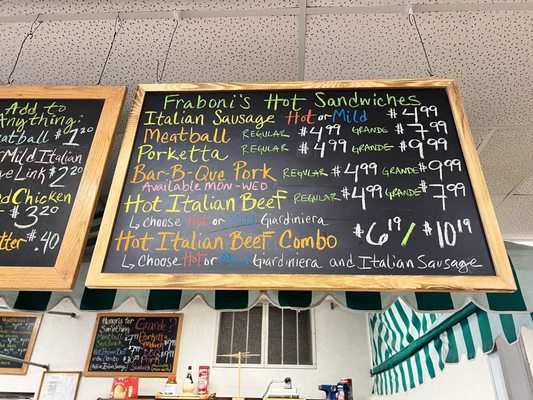 Fraboni's Hot Sandwiches
Italian Sausage Hot or Mild $4.99
Meatball Regular $4.99 Grande $7.99
Porketta Regular $4.99 Grande $9.99
Bar-B-Que Pork Regular $4.99 Grande $9.99
Available Mon-Wed
Hot Italian Beef Regular $4.99 Grande $7.99
Choose Hot or Mild Giardiniera
Hot Italian Beef Combo $6.19 / $10.19
Choose Hot or Mild Giardiniera and Italian Sausage
Add to
Anything:
eatball $1.20
Mild Italian
ve Link $2.20
d Chicken
$3.20
tter $.40
Hungry for
Something Grande?